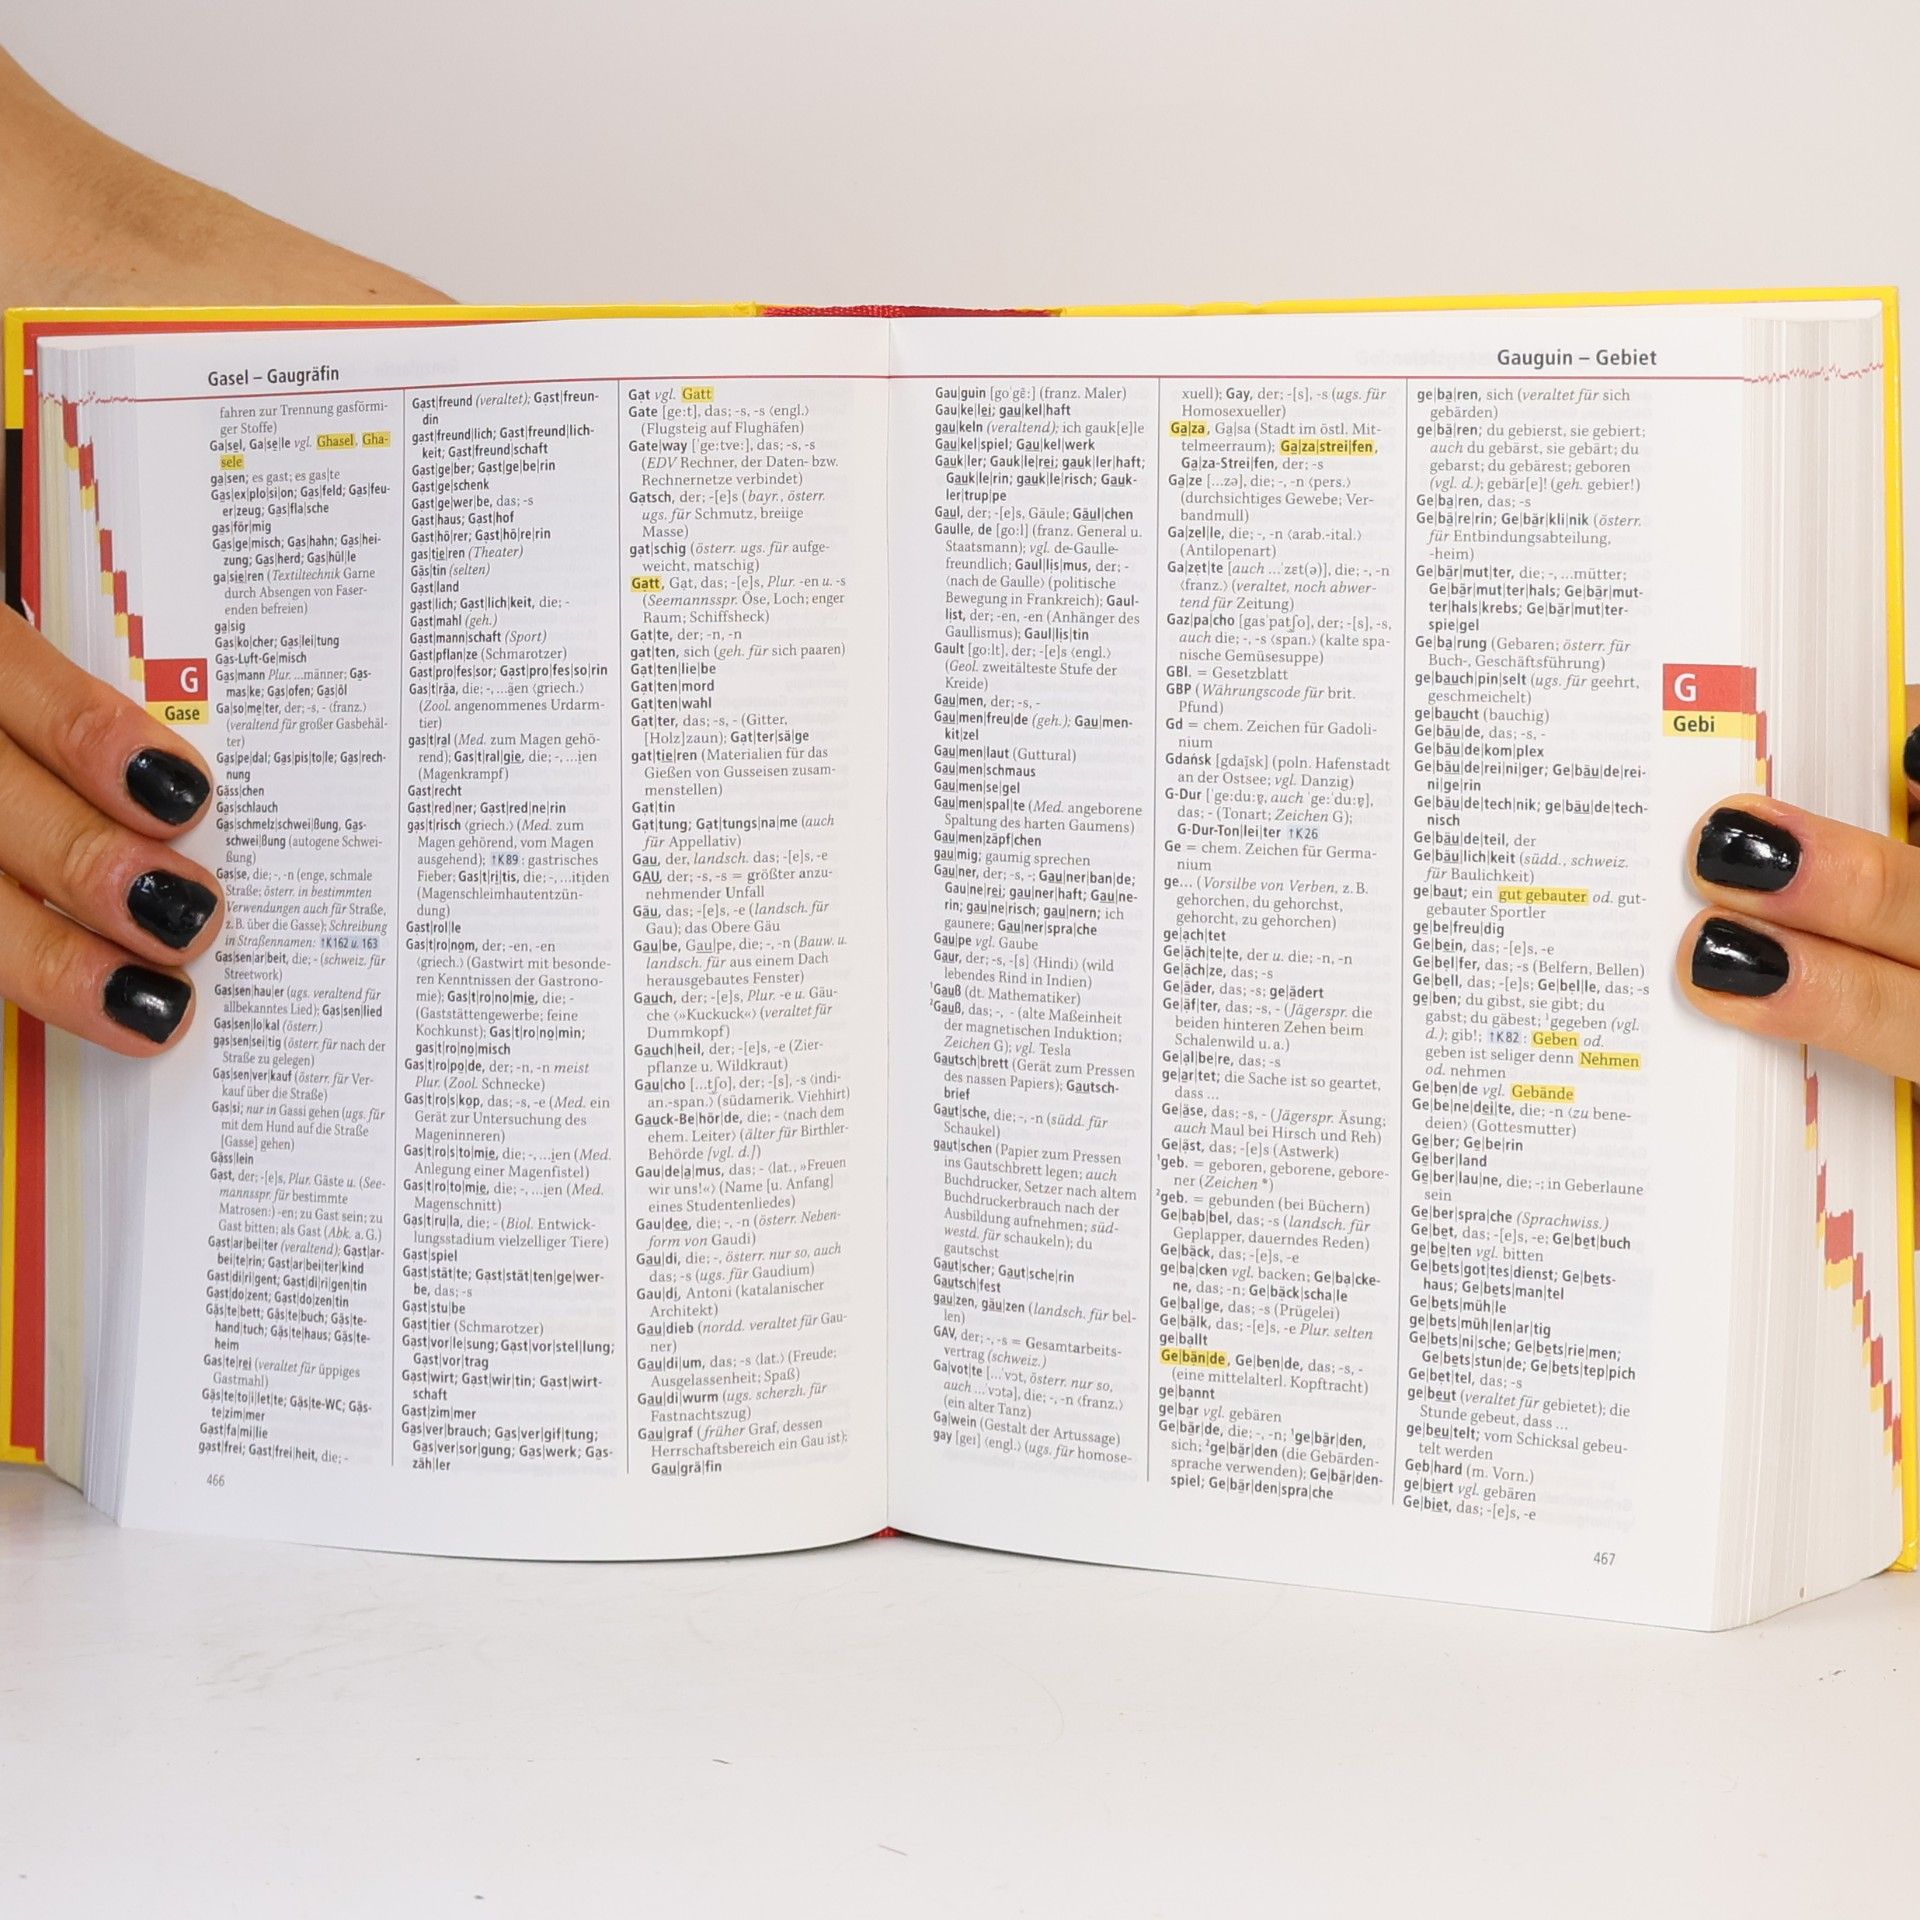 Gasel – Gaugräfin
fahren zur Trennung gasförmi-
ger Stoffe)
Ga|sel, Ga|se|le vgl. Ghasel, Gha-
sele
ga|sen; es gast; es gas|te
Gas|ex|plo|si|on; Gas|feld; Gas|feu-
er|zeug; Gas|fla|sche
gas|för|mig
Gas|ge|misch; Gas|hahn; Gas|hei-
zung; Gas|herd; Gas|hül|le
ga|sie|ren (Textiltechnik Garne
durch Absengen von Faser-
enden befreien)
ga|sig
Gas|ko|cher; Gas|lei|tung
Gas-Luft-Ge|misch
Gas|mann Plur. ...männer; Gas-
mas|ke; Gas|ofen; Gas|öl
Ga|so|me|ter, der; -s, - ⟨franz.⟩
(veraltend für großer Gasbehäl-
ter)
Gas|pe|dal; Gas|pis|to|le; Gas|rech-
nung
Gäss|chen
Gas|schlauch
Gas|schmelz|schwei|ßung, Gas-
schwei|ßung (autogene Schwei-
ßung)
Gas|se, die; -, -n (enge, schmale
Straße; österr. in bestimmten
Verwendungen auch für Straße,
z. B. über die Gasse); Schreibung
in Straßennamen: ↑K162 u. 163
Gas|sen|ar|beit, die; - (schweiz. für
Streetwork)
Gas|sen|hau|er (ugs. veraltend für
allbekanntes Lied); Gas|sen|lied
Gas|sen|lo|kal (österr.)
gas|sen|sei|tig (österr. für nach der
Straße zu gelegen)
Gas|sen|ver|kauf (österr. für Ver-
kauf über die Straße)
Gas|si; nur in Gassi gehen (ugs. für
mit dem Hund auf die Straße
[Gasse] gehen)
Gäss|lein
Gast, der; -[e]s, Plur. Gäste u. (See-
mannsspr. für bestimmte
Matrosen:) -en; zu Gast sein; zu
Gast bitten; als Gast (Abk. a. G.)
Gast|ar|bei|ter (veraltend); Gast|ar-
bei|te|rin; Gast|ar|bei|ter|kind
Gast|di|ri|gent; Gast|di|ri|gen|tin
Gast|do|zent; Gast|do|zen|tin
Gäs|te|bett; Gäs|te|buch; Gäs|te-
hand|tuch; Gäs|te|haus; Gäs|te-
heim
Gas|te|rei (veraltet für üppiges
Gastmahl)
Gäs|te|toi|let|te; Gäs|te-WC; Gäs-
te|zim|mer
Gast|fa|mi|lie
gast|frei; Gast|frei|heit, die; -
466
Gast|freund (veraltet); Gast|freun-
din
gast|freund|lich; Gast|freund|lich-
keit; Gast|freund|schaft
Gast|ge|ber; Gast|ge|be|rin
Gast|ge|schenk
Gast|ge|wer|be, das; -s
Gast|haus; Gast|hof
Gast|hö|rer; Gast|hö|re|rin
gas|tie|ren (Theater)
Gäs|tin (selten)
Gast|land
gast|lich; Gast|lich|keit, die; -
Gast|mahl (geh.)
Gast|mann|schaft (Sport)
Gast|pflan|ze (Schmarotzer)
Gast|pro|fes|sor; Gast|pro|fes|so|rin
Gas|t|räa, die; -, ...äen ⟨griech.⟩
(Zool. angenommenes Urdarm-
tier)
gas|t|ral (Med. zum Magen gehö-
rend); Gas|t|ral|gie, die; -, ...ien
(Magenkrampf)
Gast|recht
Gast|red|ner; Gast|red|ne|rin
gas|t|risch ⟨griech.⟩ (Med. zum
Magen gehörend, vom Magen
ausgehend); ↑K89 : gastrisches
Fieber; Gas|t|ri|tis, die; -, ...itiden
(Magenschleimhautentzün-
dung)
Gast|rol|le
Gas|t|ro|nom, der; -en, -en
⟨griech.⟩ (Gastwirt mit besonde-
ren Kenntnissen der Gastrono-
mie); Gas|t|ro|no|mie, die; -
(Gaststättengewerbe; feine
Kochkunst); Gas|t|ro|no|min;
gas|t|ro|no|misch
Gas|t|ro|po|de, der; -n, -n meist
Plur. (Zool. Schnecke)
Gas|t|ro|s|kop, das; -s, -e (Med. ein
Gerät zur Untersuchung des
Mageninneren)
Gas|t|ro|s|to|mie, die; -, ...ien (Med.
Anlegung einer Magenfistel)
Gas|t|ro|to|mie, die; -, ...ien (Med.
Magenschnitt)
Gas|t|ru|la, die; - (Biol. Entwick-
lungsstadium vielzelliger Tiere)
Gast|spiel
Gast|stät|te; Gast|stät|ten|ge|wer-
be, das; -s
Gast|stu|be
Gast|tier (Schmarotzer)
Gast|vor|le|sung; Gast|vor|stel|lung;
Gast|vor|trag
Gast|wirt; Gast|wir|tin; Gast|wirt-
schaft
Gast|zim|mer
Gas|ver|brauch; Gas|ver|gif|tung;
Gas|ver|sor|gung; Gas|werk; Gas-
zäh|ler
Gat vgl. Gatt
Gate [ge:t], das; -s, -s ⟨engl.⟩
(Flugsteig auf Flughäfen)
Gate|way ['ge:tve:], das; -s, -s
(EDV Rechner, der Daten- bzw.
Rechnernetze verbindet)
Gatsch, der; -[e]s (bayr., österr.
ugs. für Schmutz, breiige
Masse)
gat|schig (österr. ugs. für aufge-
weicht, matschig)
Gatt, Gat, das; -[e]s, Plur. -en u. -s
(Seemannsspr. Öse, Loch; enger
Raum; Schiffsheck)
Gat|te, der; -n, -n
gat|ten, sich (geh. für sich paaren)
Gat|ten|lie|be
Gat|ten|mord
Gat|ten|wahl
Gat|ter, das; -s, - (Gitter,
[Holz]zaun); Gat|ter|sä|ge
gat|tie|ren (Materialien für das
Gießen von Gusseisen zusam-
menstellen)
Gat|tin
Gat|tung; Gat|tungs|na|me (auch
für Appellativ)
Gau, der, landsch. das; -[e]s, -e
GAU, der; -s, -s = größter anzu-
nehmender Unfall
Gäu, das; -[e]s, -e (landsch. für
Gau); das Obere Gäu
Gau|be, Gau|pe, die; -, -n (Bauw. u.
landsch. für aus einem Dach
herausgebautes Fenster)
Gauch, der; -[e]s, Plur. -e u. Gäu-
che (»Kuckuck«) (veraltet für
Dummkopf)
Gauch|heil, der; -[e]s, -e (Zier-
pflanze u. Wildkraut)
Gau|cho [...tʃo], der; -[s], -s ⟨indi-
an.-span.⟩ (südamerik. Viehhirt)
Gauck-Be|hör|de, die; - ⟨nach dem
ehem. Leiter⟩ (älter für Birthler-
Behörde [vgl. d.])
Gau|de|a|mus, das; - ⟨lat., »Freuen
wir uns!«⟩ (Name [u. Anfang]
eines Studentenliedes)
Gau|dee, die; -, -n (österr. Neben-
form von Gaudi)
Gau|di, die; -, österr. nur so, auch
das; -s (ugs. für Gaudium)
Gau|dí, Antoni (katalanischer
Architekt)
Gau|dieb (nordd. veraltet für Gau-
ner)
Gau|di|um, das; -s ⟨lat.⟩ (Freude;
Ausgelassenheit; Spaß)
Gau|di|wurm (ugs. scherzh. für
Fastnachtszug)
Gau|graf (früher Graf, dessen
Herrschaftsbereich ein Gau ist);
Gau|grä|fin
G
Gase
Gauguin – Gebiet
Gau|guin [go'gɛ̃:] (franz. Maler)
Gau|ke|lei; gau|kel|haft
gau|keln (veraltend); ich gauk[e]le
Gau|kel|spiel; Gau|kel|werk
Gauk|ler; Gauk|le|rei; gauk|ler|haft;
Gauk|le|rin; gauk|le|risch; Gauk-
ler|trup|pe
Gaul, der; -[e]s, Gäule; Gäul|chen
Gaulle, de [go:l] (franz. General u.
Staatsmann); vgl. de-Gaulle-
freundlich; Gaul|lis|mus, der; -
⟨nach de Gaulle⟩ (politische
Bewegung in Frankreich); Gaul-
list, der; -en, -en (Anhänger des
Gaullismus); Gaul|lis|tin
Gault [go:lt], der; -[e]s ⟨engl.⟩
(Geol. zweitälteste Stufe der
Kreide)
Gau|men, der; -s, -
Gau|men|freu|de (geh.); Gau|men-
kit|zel
Gau|men|laut (Guttural)
Gau|men|schmaus
Gau|men|se|gel
Gau|men|spal|te (Med. angeborene
Spaltung des harten Gaumens)
Gau|men|zäpf|chen
gau|mig; gaumig sprechen
Gau|ner, der; -s, -; Gau|ner|ban|de;
Gau|ne|rei; gau|ner|haft; Gau|ne-
rin; gau|ne|risch; gau|nern; ich
gaunere; Gau|ner|spra|che
Gau|pe vgl. Gaube
Gaur, der; -s, -[s] ⟨Hindi⟩ (wild
lebendes Rind in Indien)
¹Gauß (dt. Mathematiker)
²Gauß, das; -, - (alte Maßeinheit
der magnetischen Induktion;
Zeichen G); vgl. Tesla
Gautsch|brett (Gerät zum Pressen
des nassen Papiers); Gautsch-
brief
Gaut|sche, die; -, -n (südd. für
Schaukel)
gaut|schen (Papier zum Pressen
ins Gautschbrett legen; auch
Buchdrucker, Setzer nach altem
Buchdruckerbrauch nach der
Ausbildung aufnehmen; süd-
westd. für schaukeln); du
gautschst
Gaut|scher; Gaut|sche|rin
Gautsch|fest
gau|zen, gäu|zen (landsch. für bel-
len)
GAV, der; -, -s = Gesamtarbeits-
vertrag (schweiz.)
Ga|vot|te [...'vɔt, österr. nur so,
auch ...'vɔtə], die; -, -n ⟨franz.⟩
(ein alter Tanz)
Ga|wein (Gestalt der Artussage)
gay [geɪ] ⟨engl.⟩ (ugs. für homose-
xuell); Gay, der; -[s], -s (ugs. für
Homosexueller)
Ga|za, Ga|sa (Stadt im östl. Mit-
telmeerraum); Ga|za|strei|fen,
Ga|za-Strei|fen, der; -s
Ga|ze [...zə], die; -, -n ⟨pers.⟩
(durchsichtiges Gewebe; Ver-
bandmull)
Ga|zel|le, die; -, -n ⟨arab.-ital.⟩
(Antilopenart)
Ga|zet|te [auch ...'zɛt(ə)], die; -, -n
⟨franz.⟩ (veraltet, noch abwer-
tend für Zeitung)
Gaz|pa|cho [gas'patʃo], der; -[s], -s,
auch die; -, -s ⟨span.⟩ (kalte spa-
nische Gemüsesuppe)
GBl. = Gesetzblatt
GBP (Währungscode für brit.
Pfund)
Gd = chem. Zeichen für Gadoli-
nium
Gdańsk [gdaɪ̯sk] (poln. Hafenstadt
an der Ostsee; vgl. Danzig)
G-Dur ['ge:du:ɐ̯, auch 'ge:'du:ɐ̯],
das; - (Tonart; Zeichen G);
G-Dur-Ton|lei|ter ↑K26
Ge = chem. Zeichen für Germa-
nium
ge... (Vorsilbe von Verben, z. B.
gehorchen, du gehorchst,
gehorcht, zu gehorchen)
ge|ach|tet
Ge|äch|te|te, der u. die; -n, -n
Ge|äch|ze, das; -s
Ge|äder, das; -s; ge|ädert
Ge|äf|ter, das; -s, - (Jägerspr. die
beiden hinteren Zehen beim
Schalenwild u. a.)
Ge|al|be|re, das; -s
ge|ar|tet; die Sache ist so geartet,
dass ...
Ge|äse, das; -s, - (Jägerspr. Äsung;
auch Maul bei Hirsch und Reh)
Ge|äst, das; -[e]s (Astwerk)
¹geb. = geboren, geborene, gebore-
ner (Zeichen *)
²geb. = gebunden (bei Büchern)
Ge|bab|bel, das; -s (landsch. für
Geplapper, dauerndes Reden)
Ge|bäck, das; -[e]s, -e
ge|ba|cken vgl. backen; Ge|ba|cke-
ne, das; -n; Ge|bäck|scha|le
Ge|bal|ge, das; -s (Prügelei)
Ge|bälk, das; -[e]s, -e Plur. selten
ge|ballt
Ge|bän|de, Ge|ben|de, das; -s, -
(eine mittelalterl. Kopftracht)
ge|bannt
ge|bar vgl. gebären
Ge|bär|de, die; -, -n; ¹ge|bär|den,
sich; ²ge|bär|den (die Gebärden-
sprache verwenden); Ge|bär|den-
spiel; Ge|bär|den|spra|che
ge|ba|ren, sich (veraltet für sich
gebärden)
ge|bä|ren; du gebierst, sie gebiert;
auch du gebärst, sie gebärt; du
gebarst; du gebärest; geboren
(vgl. d.); gebär[e]! (geh. gebier!)
Ge|ba|ren, das; -s
Ge|bä|re|rin; Ge|bär|kli|nik (österr.
für Entbindungsabteilung,
-heim)
Ge|bär|mut|ter, die; -, ...mütter;
Ge|bär|mut|ter|hals; Ge|bär|mut-
ter|hals|krebs; Ge|bär|mut|ter-
spie|gel
Ge|ba|rung (Gebaren; österr. für
Buch-, Geschäftsführung)
ge|bauch|pin|selt (ugs. für geehrt,
geschmeichelt)
ge|baucht (bauchig)
Ge|bäu|de, das; -s, -
Ge|bäu|de|kom|plex
Ge|bäu|de|rei|ni|ger; Ge|bäu|de|rei-
ni|ge|rin
Ge|bäu|de|tech|nik; ge|bäu|de|tech-
nisch
Ge|bäu|de|teil, der
Ge|bäu|lich|keit (südd., schweiz.
für Baulichkeit)
ge|baut; ein gut gebauter od. gut-
gebauter Sportler
ge|be|freu|dig
Ge|bein, das; -[e]s, -e
Ge|bel|fer, das; -s (Belfern, Bellen)
Ge|bell, das; -[e]s; Ge|bel|le, das; -s
ge|ben; du gibst, sie gibt; du
gabst; du gäbest; ¹gegeben (vgl.
d.); gib!; ↑K82 : Geben od.
geben ist seliger denn Nehmen
od. nehmen
Ge|ben|de vgl. Gebände
Ge|be|ne|dei|te, die; -n ⟨zu bene-
deien⟩ (Gottesmutter)
Ge|ber; Ge|be|rin
Ge|ber|land
Ge|ber|lau|ne, die; -; in Geberlaune
sein
Ge|ber|spra|che (Sprachwiss.)
Ge|bet, das; -[e]s, -e; Ge|bet|buch
ge|be|ten vgl. bitten
Ge|bets|got|tes|dienst; Ge|bets-
haus; Ge|bets|man|tel
Ge|bets|müh|le
ge|bets|müh|len|ar|tig
Ge|bets|ni|sche; Ge|bets|rie|men;
Ge|bets|stun|de; Ge|bets|tep|pich
Ge|bet|tel, das; -s
ge|beut (veraltet für gebietet); die
Stunde gebeut, dass ...
ge|beu|telt; vom Schicksal gebeu-
telt werden
Geb|hard (m. Vorn.)
ge|biert vgl. gebären
Ge|biet, das; -[e]s, -e
G
Gebi
467